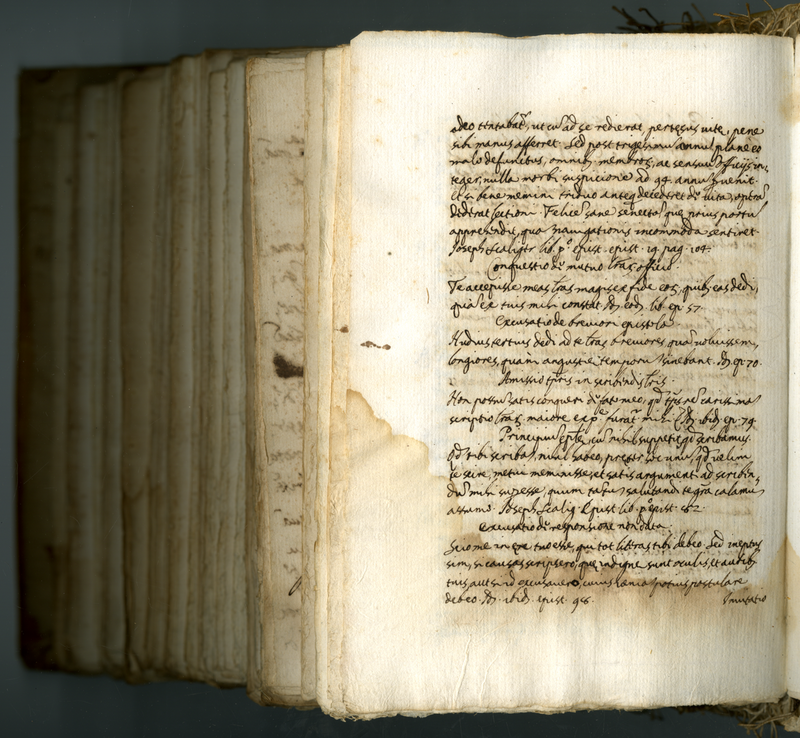 adeo tentabat, ut cu ad se redierat, pertesus vite, pene
sibi manus afferret. Sed post trigesimu annu plane eo
malo defunctus, omnibus membroru, ac sensuu officijs in-
teger, nulla morbi suspicione ad 94 annu puenit
Et si bene memini triduo anteq decederet de vita, opera
dederat lectioni. Felice sane senecta, que prius portu
apprehendit, qua navigationis incommoda sentiret.
Joseph Scaliger lib. p.º epist. epist. 19 pag. 104.
Conquestio de mutuo lrar officio.
Te accepisse meas lras magis ex fide eor, quib eas dedi,
qua ex tuis mihi constat. Id. eod. lib. ep. 57.
Excusatio de breviori epistola
Nudius tertius dedi ad te lras breviores, qua voluissem,
longiores, quam angustie temporu sinebant. Id. ep. 70.
Amissio tpris in scribendis lris.
Non possu satis conqueri de fato meo, qd tpis rei carissima
scriptio lrar maiore ex pte furat mihi. Id. ibid. ep. 79.
Principiu eple, cu nihil suppetit qd scribamus.
Qd tibi scriba, nihil habeo, preter hoc unu, qd velim
te scire, me tui meminisse, et satis argumenti ad scriben-
du mihi supesse, quum tatu salutandi te gra calamu
assumo. Joseph Scalig. Epist. lib. p.º epist. 82.
Excusatio de responsione non data.
Scio me in ere tuo esse, qui tot litteras tibi debeo. Sed ineptus
sim, si causas scripsero, que indigne sunt oculis et auribus
tuis, aut si id excusavero, cuius venia potius postulare
debeo. Id. ibid. epist. 98.
Invitatio